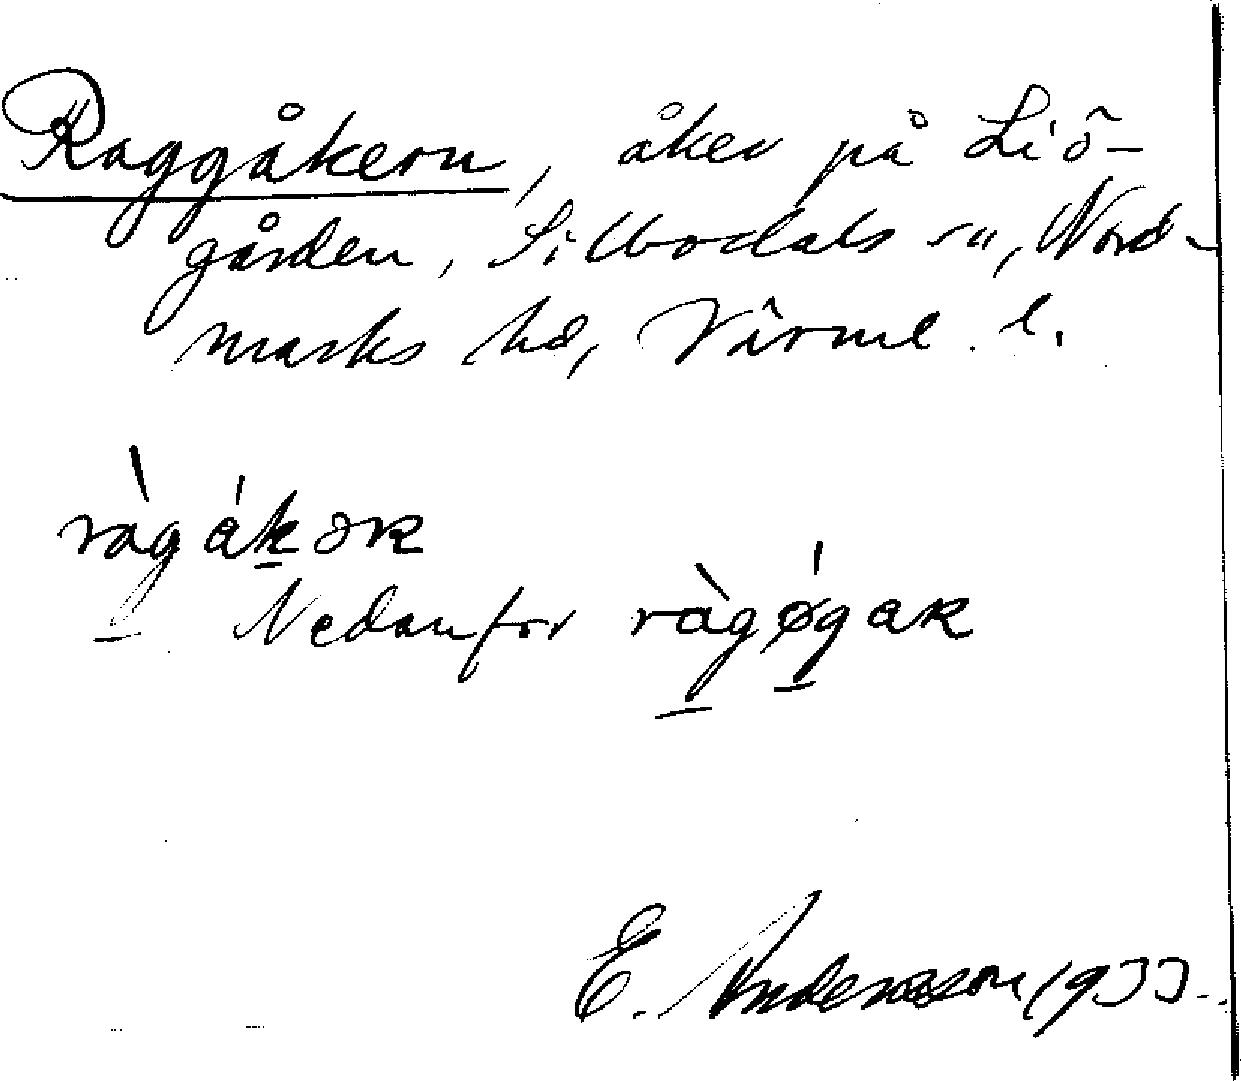 Raggåkern, åker på Liö-
gården, Silbodals sn, Nord-
marks hd, Värml. l.
ràgákəʀ
Nedanför ràgǿgaʀ
E. Andersson 1933.